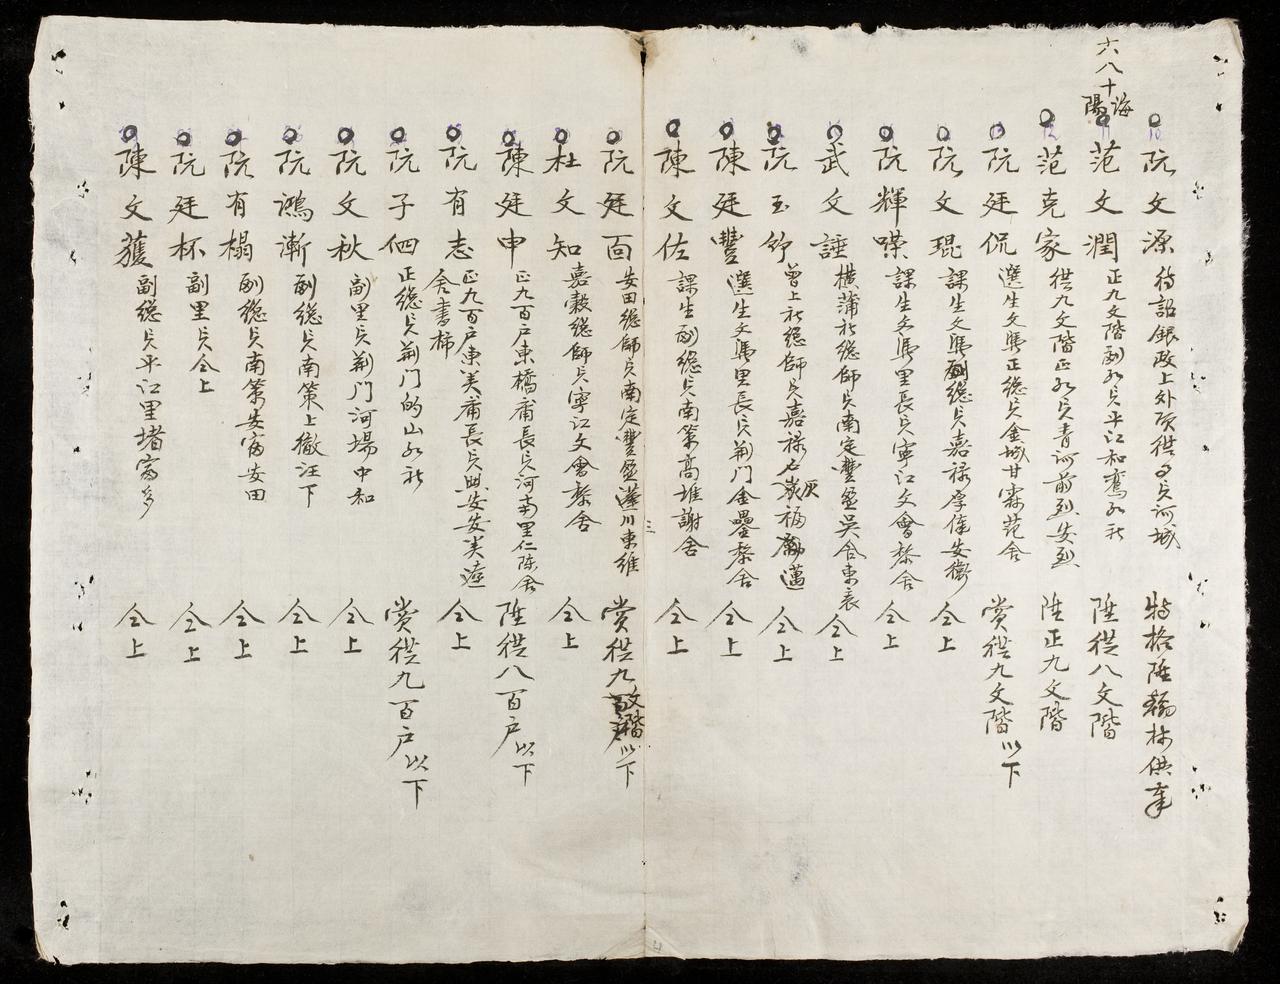 六八十
海陽
阮文源 待詔銀政上外項供司員河城 特格陞翰林供奉
范文潤 正九文階副和員平江和鸞和社 陞從八文階
范克家 從九文階正和員青河前烈安烈 陞正九文階
阮廷侃 選生文馮正總員金城甘霖范舍 賞從九文階以下
阮文琨 課生文馮副總員嘉祿厚俸安衛 仝上
阮輝 課生文馮里長員寧江文會黎舍 仝上
武文諈 橫蒲社總師員南定豐盈吳舍東 仝上
阮玉 曾上社總師員嘉祿石炭福邁 仝上
陳廷豐 選生文馮里長員荆门金壘黎舍 仝上
陳文佐 課生副總員南策高堆謝舍 仝上
三
阮廷百 安田總師員南定豐盈蓬川東維 賞從九文階以下
杜文知 嘉穀總師員寧江文會黎舍 仝上
陳廷申 正九百户東橋甫長員河南里仁陈舍 陞從八百户以下
阮有志 正九百户東美甫長員興安安美遼舍書柿 仝上
阮子伵 正總員荆门的山和社 賞從九百户以下
阮文秋 副里員荆门河場中和 仝上
阮鴻漸 副總員南策上撤汪下 仝上
阮有榻 副總員南策安富安田 仝上
阮廷杯 副里員仝上 仝上
陳文獲 副總員平江里堵富多 仝上